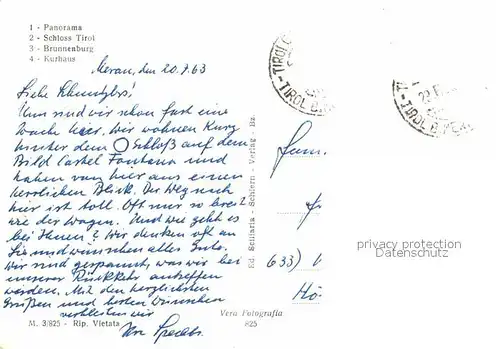 1 - Panorama
2 - Schloss Tirol
3 - Brunnenburg
4 - Kurhaus
Meran, den 20.7.63
Liebe
Nun sind wir schon fast eine
Woche hier. Wir wohnen kurz
hinter dem O Schloß auf dem
Bild Castel Fontana und
haben von hier aus einen
herrlichen Blick. Der Weg nach
hier ist toll. Oft nur so breit
wie der Wagen. Und wie geht es
bei Ihnen? Wir denken oft an
Sie und wünschen alles Gute.
Wir sind gespannt, was wir bei
unserer Rückkehr antreffen
werden. Mit den herzlichsten
Grüßen und besten Wünschen
verbleiben wir
Ihre
M. 3/825 - Rip. Vietata
Ed. Scultaris - Schlern - Verlag - Bz.
Vera Fotografia
825
TIROL
- TIROL B.
TIROL B. MERA
Fam.
633)
Hö-
privacy protection
Datenschutz